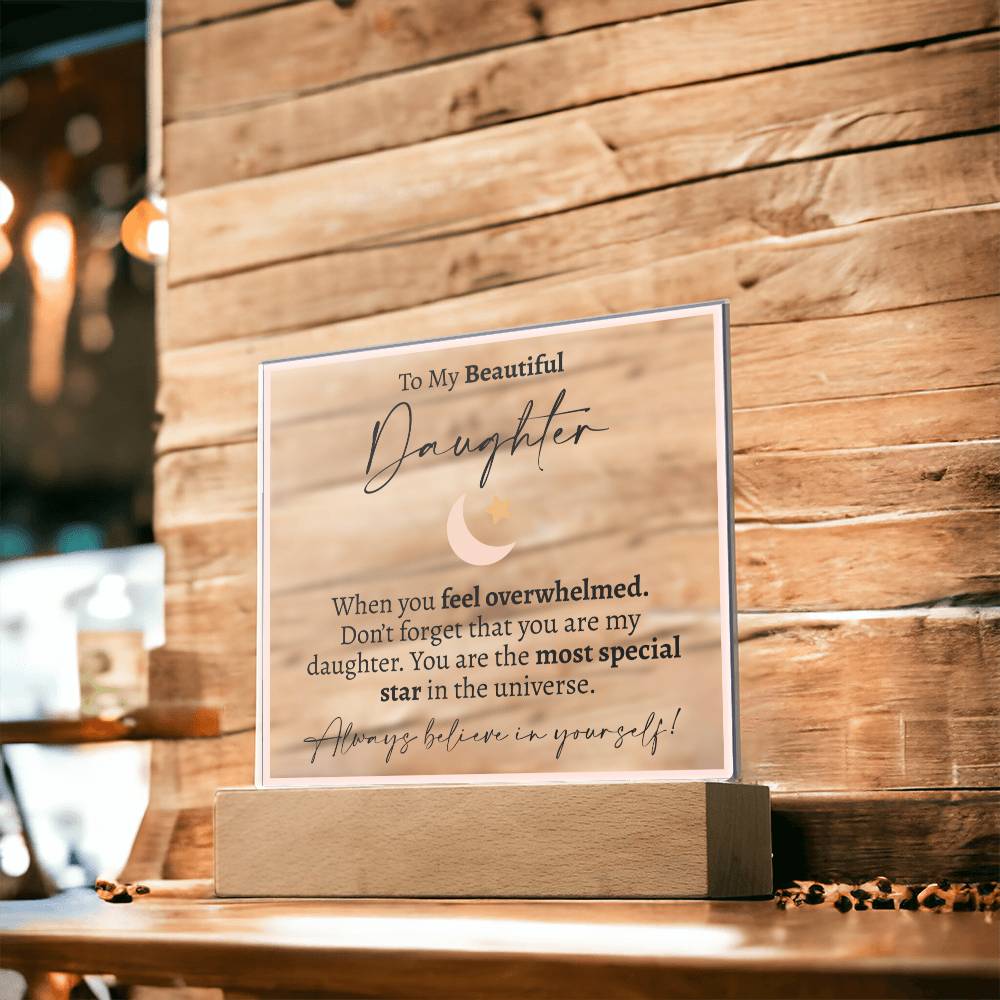 To My Beautiful
Daughter
When you feel overwhelmed.
Don't forget that you are my
daughter. You are the most special
star in the universe.
Always believe in yourself!